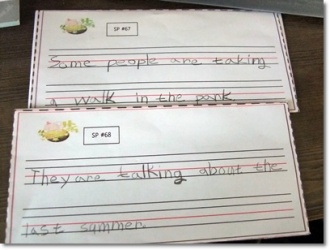 SP #67
Some people are taking
a walk in the park.
SP #68
They are talking about the
last summer.